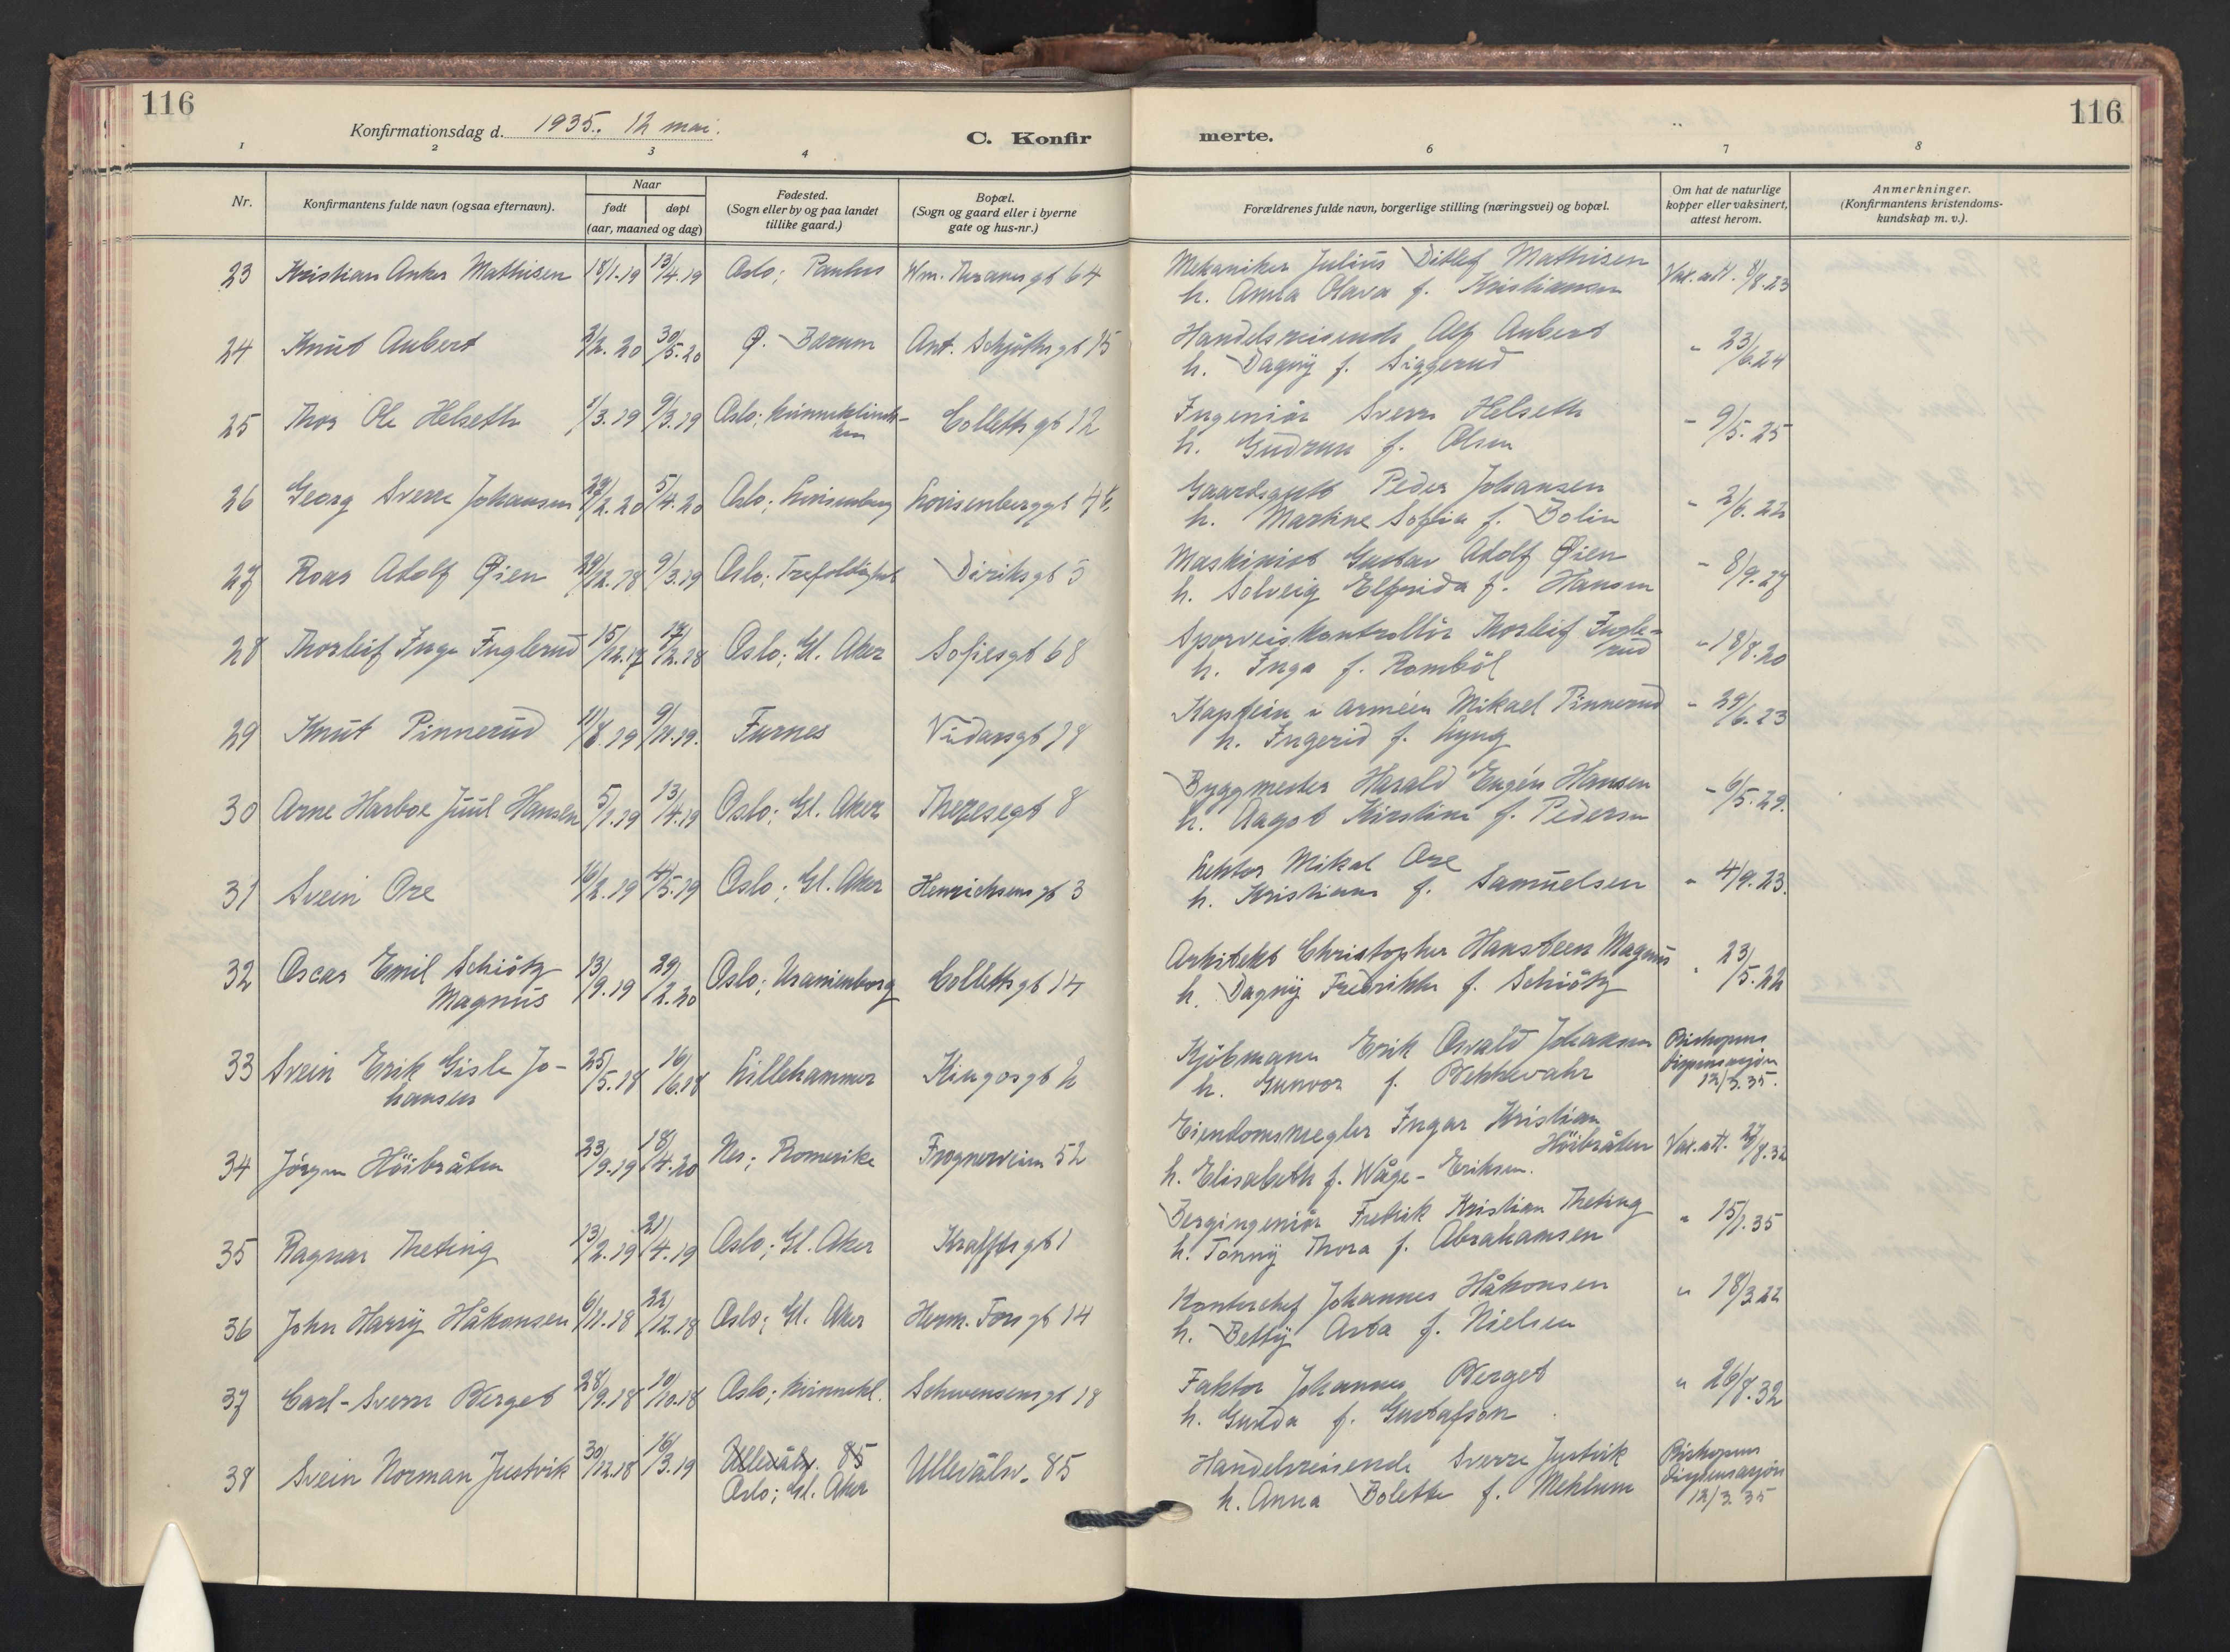 116
116
Konfirmationsdag d. 1935. 12 mai.
C. Konfir
merte.
1 2 3 4 6 7 8
Nr.
Konfirmantens fulde navn (ogsaa efternavn).
Naar
født døpt
(aar, maaned og dag)
Fødested.
(Sogn eller by og paa landet
tillike gaard.)
Bopæl.
(Sogn og gaard eller i byerne
gate og hus-nr.)
Forældrenes fulde navn, borgerlige stilling (næringsvei) og bopæl.
Om hat de naturlige
kopper eller vaksinert,
attest herom.
Anmerkninger.
(Konfirmantens kristendoms-
kundskap m. v.).
23 Kristian Anker Mathisen 18/1.19 13/4.19 Oslo; Paulus Wm. Thranesgt 64 Mekaniker Julius Ditlef Mathisen Vak. att. 8/8.23
h. Anna Olava f. Kristiansen
24 Knut Aubert 2/2.20 30/5.20 Ø. Bærum Ant. Schjøthsgt 15 Handelsreisende Alf Aubert " 23/6.24
h. Dagny f. Siggerud
25 Thor Ole Helseth 1/3.19 9/3.19 Oslo; Kvinneklinik- Collettsgt 12 Ingeniør Sverre Helseth " 9/5.25
ken h. Gudrun f. Olsen
26 Georg Sverre Johansen 29/2.20 5/4.20 Oslo; Lovisenberg Lovisenberggt Gaardsgutt Peder Johansen " 2/6.22
h. Martine Sofia f. Bolin
27 Roar Adolf Øien 29/12.18 9/3.19 Oslo; Trefoldighet Diriksgt 5 Maskinist Gustav Adolf Øien " 8/9.27
h. Solveig Elfrida f. Hansen
28 Thorleif Inge Fuglerud 15/12.17 17/2.18 Oslo; Gl. Aker Sofiesgt 68 Sporveiskontrollør Thorleif Fugle-
rud " 18/8.20
h. Inga f. Rombøl
29 Knut Pinnerud 11/8.19 9/11.19. Furnes Vidarsgt 18 Kaptein i arméen Mikael Pinnerud " 29/6.23
h. Ingerid f. Lyng
30 Arne Harboe Juul Hansen 5/1.19 13/4.19 Oslo; Gl. Aker Theresegt 8 Byggmester Harald Eugén Hansen " 6/5.29.
h. Aagot Kirstine f. Pedersen
31 Svein Ore 16/2.19 4/5.19 Oslo; Gl. Aker Henrichsensgt 3 Lektor Mikal Ore " 4/9.23.
h. Kristiane f. Samuelsen
32 Oscar Emil Schiøtz 13/9.19 29/2.20 Oslo; Uranienborg Collettsgt 14 Arkitekt Christopher Hansteen Magnus " 23/5.22
Magnus h. Dagny Fredrikke f. Schiøtz
33 Svein Erik Gisle Jo- 25/5.18 16/6.18 Lillehammer Kingosgt 2 Kjøbmann Erik Osvald Johansen Biskopens
hansen h. Gunvor f. Bekkevahr dispensasjon
12/3.35.
34 Jørgen Höibråten 23/9.19 18/4.20 Nes; Romerike Frognerveien 52 Eiendomsmegler Ingar Kristian
Höibråten Vak. att. 27/8.32
h. Elisabeth f. Wåge-Eriksen.
35 Ragnar Theting 13/2.19 21/4.19 Oslo; Gl. Aker Krafftsgt 1 Bergingeniør Fredrik Kristian Theting " 15/1.35
h. Tonny Thora f. Abrahamsen
36 John Harry Håkonsen 6/11.18 22/12.18 Oslo; Gl. Aker Herm. Fossgt 14 Kontorchef Johannes Håkonsen " 18/3 22
h. Betty Asta f. Nielsen
37 Carl-Sverre Berget 28/9.18 10/10.18 Oslo; Kvinnekl. Schwensensgt 18 Faktor Johannes Berget " 26/8.32
h. Gunda f. Gustafson
38 Svein Norman Justvik 30/12.18 16/3.19 Ullevålsv. 85 Ullevålsv. 85 Handelsreisende Sverre Justvik Biskopens
Oslo; Gl. Aker h. Anna Bolette f. Mehlum dispensasjon
12/3.35